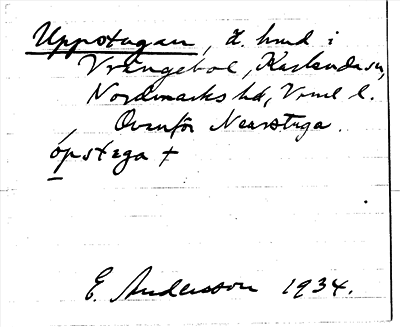 Uppstugan, d. hmd i
Vrängebol, Karlanda sn,
Nordmarks hd, Vrml l.
Ovanför Nearstuga.
öpstega +
E. Andersson 1934.